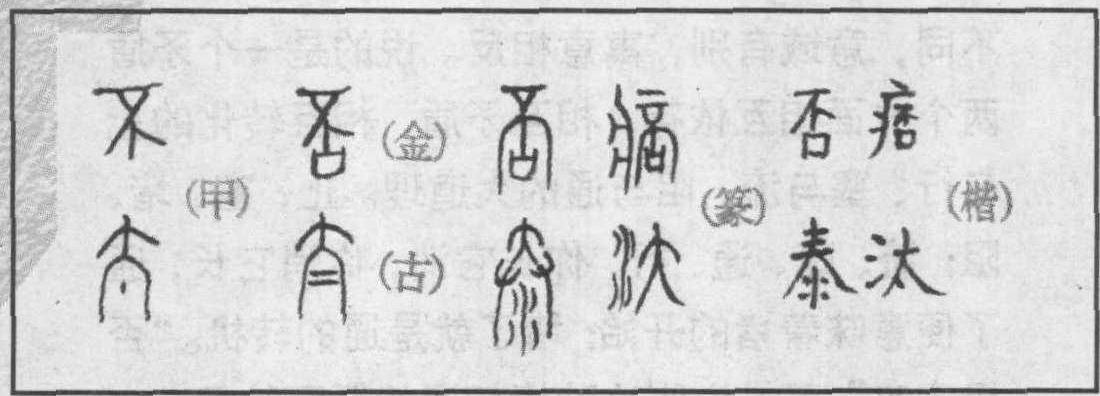 不 否 (金) 否 痞 否 痞
(甲) (篆) (楷)
太 太 (古) 泰 汰 泰 汰